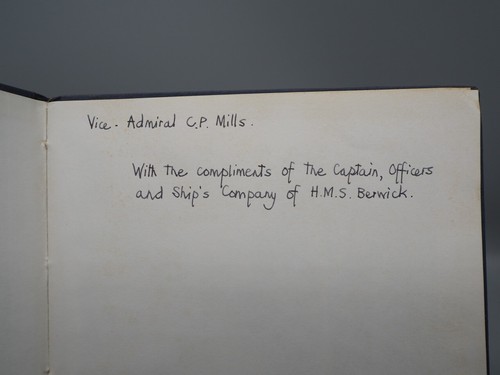 Vice - Admiral C.P. Mills.
With the compliments of the Captain, Officers
and Ship's Company of H.M.S. Berwick.